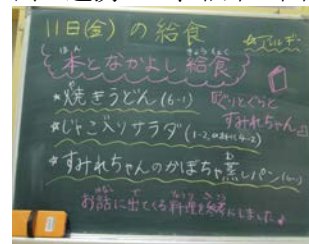 11日(金)の給食
☆アレルギー
本となかよし給食
ほん きゅうしょく
☆焼きうどん(6-1)
『ぐりとぐらと
すみれちゃん』
☆じゃこ入りサラダ(1-2,
☆すみれちゃんのかぼちゃ蒸しパン
お話に出てくる料理を参考にしました♪